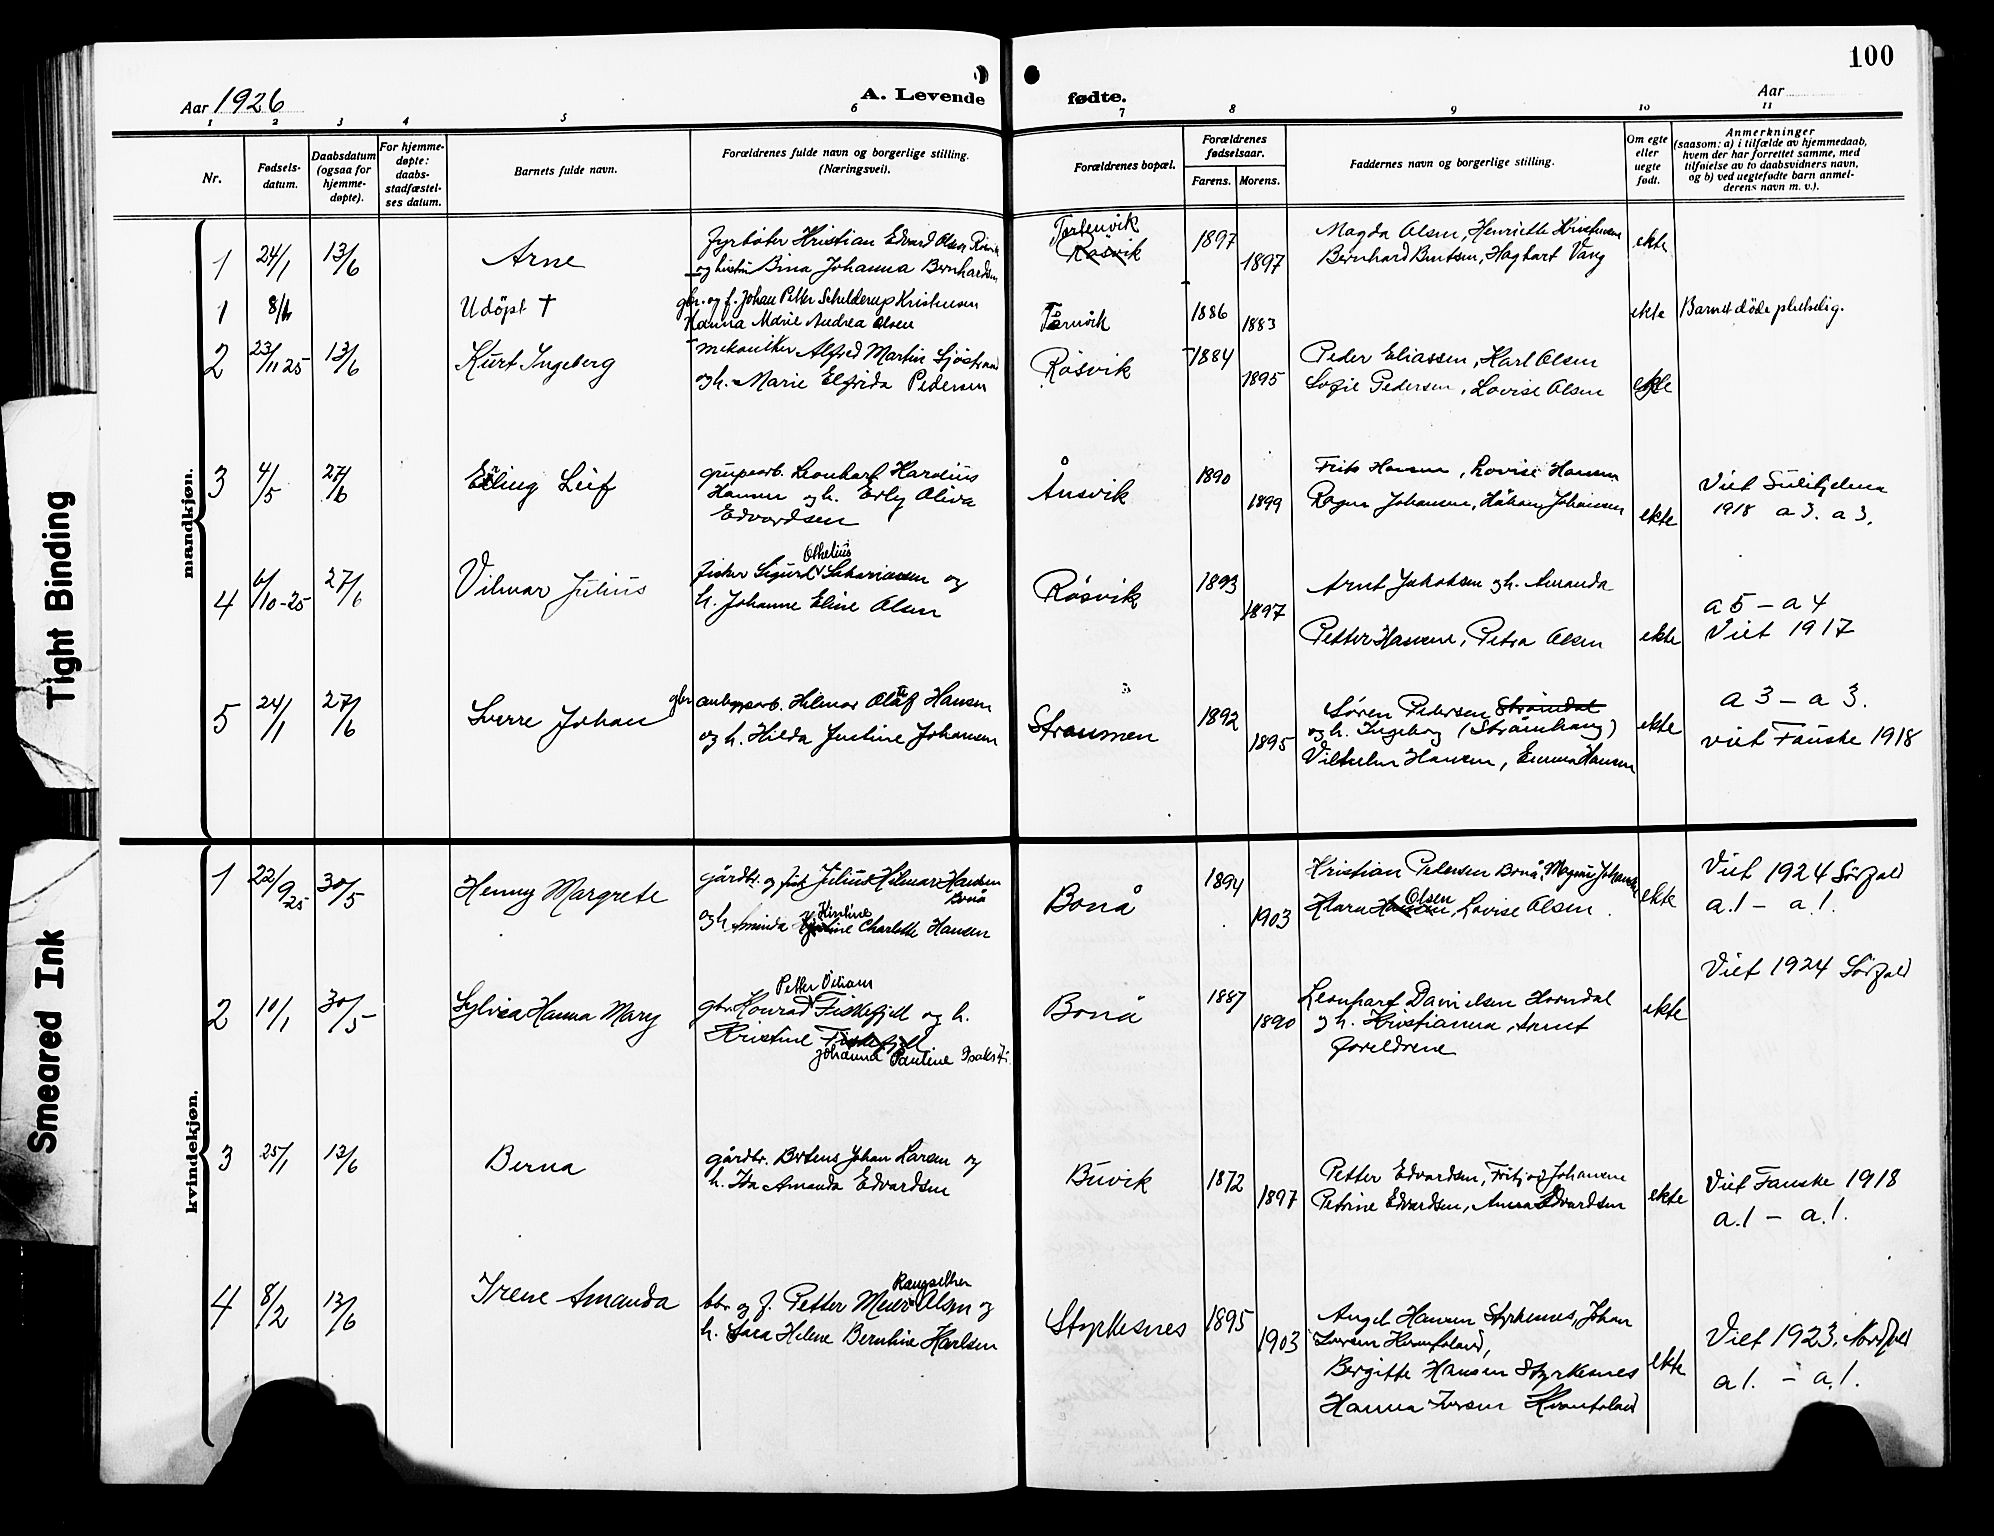 100
Aar 1926
A. Levende
fødte.
Aar
1 2 3 4 5 6 7 8 9 10 11
Nr.
Fødsels-
datum.
Daabsdatum
(ogsaa for
hjemme-
døpte).
For hjemme-
døpte:
daabs-
stadfæstel-
ses datum.
Barnets fulde navn.
Forældrenes fulde navn og borgerlige stilling.
(Næringsvei).
Forældrenes bopæl.
Forældrenes
fødselsaar.
Farens. Morens.
Faddernes navn og borgerlige stilling.
Om egte
eller
uegte
født.
Anmerkninger
(saasom: a) i tilfælde av hjemmedaab,
hvem der har forrettet samme, med
tilføielse av to daabsvidners navn,
og b) ved uegtefødte barn anmel-
derens navn m. v.).
mandkjøn.
1 24/1 13/6 Arne
Fyrbøter Kristian Edvard Olsen Røsvik
og hustru Bina Johanna Bernhardsen
Røsvik
1897 1897
Magda Olsen, Henriette Kristensen
Bernhard Bentsen, Hagbart Vang
ekte
1 Udöpt †
gbr. og f. Johan Petter Schelderup Kristensen
Hanna Marie Andrea Olsen
Tørrvik
1886 1883
ekte
Barnet döde pludselig.
2 23/11 25 13/6 Kurt Ingeberg
mekaniker Alfred Martin Sjöstrand
og h. Marie Elfrida Pedersen
Røsvik
1884 1895
Peder Eliassen, Karl Olsen
Sofie Pedersen, Lovise Olsen
ekte
3 4/5 27/6 Erling Leif
grupearb. Leonhart Harelius
Hansen og h. Erly Oliva
Edvardsen
Ånsvik
1890 1899
Frits Hansen, Lovise Hansen
Ragna Johansen, Håkon Johansen
ekte
Viet Sulitjelma
1918 a 3. a 3.
4 6/10-25 27/6 Vilmar Julius
Othelius
fisker Sigurd Sakariassen og
h. Johanne Eline Olsen
Røsvik
1893 1897
Arnt Jakobsen og h. Amanda
Petter Hansen, Petra Olsen
ekte
a 5 – a 4
Viet 1917
5 24/1 27/6 Sverre Johan
gbr. anleggsarb. Hilmar Olaf Hansen
og h. Hilda Justine Johansen
Straumen
1892 1895
Søren Pedersen Strømdal
og h. Ingeborg (Strömhaug)
Vilhelm Hansen, Emma Hansen
ekte
a 3 – a 3.
viet Fauske 1918
kvindekjøn.
1 22/9 25 30/5 Henny Margrete
gårdbr. og fisk Julius Hilmar Hansen
Bonå
Kirstine
og h. Aminda Charlotte Hansen
Bonå
1894 1903
Kristian Pedersen Bonå, Magnus Johansen
Olsen
Klara Hansen, Lovise Olsen.
ekte
Viet 1924 Sørfold
a.1 – a.1.
2 10/1 30/5 Sylvia Hanna Mary
Petter Vilians
gbr. Konrad Fiskefjell og h.
Kristine Fiskefjell
Johanna Pauline Isaksd.
Bonå
1887 1890
Leonhart Danielsen Horndal
og h. Kristianna, samt
foreldrene
ekte
Viet 1924 Sørfold
3 25/1 13/6 Berna
gårdbr. Bertens Johan Larsen og
h. Ida Amanda Edvardsen
Buvik
1872 1897
Petter Edvardsen, Fritjof Johansen
Petrine Edvardsen, Anna Edvardsen
ekte
Viet Fauske 1918
a.1 – a.1.
4 8/2 13/6 Irene Amanda
bbr og f. Petter Meier Olsen og
h. Sara Helene Bernhine Karlsen
Styrkesnes
1895 1903
Angel Hansen Styrkesnes, Johan
Iversen
Bergitte Hansen Styrkesnes
Hanna Iversen
ekte
Viet 1923. Nordfold
a 1. – a.1.
Tight Binding
Smeared Ink